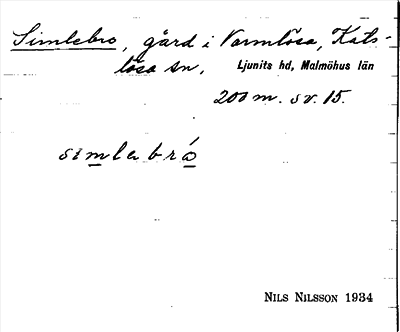 Simlebro, gård i Varmlösa, Kats-
lösa sn, Ljunits hd, Malmöhus län
200 m. sv. 15.
simlebró
NILS NILSSON 1934